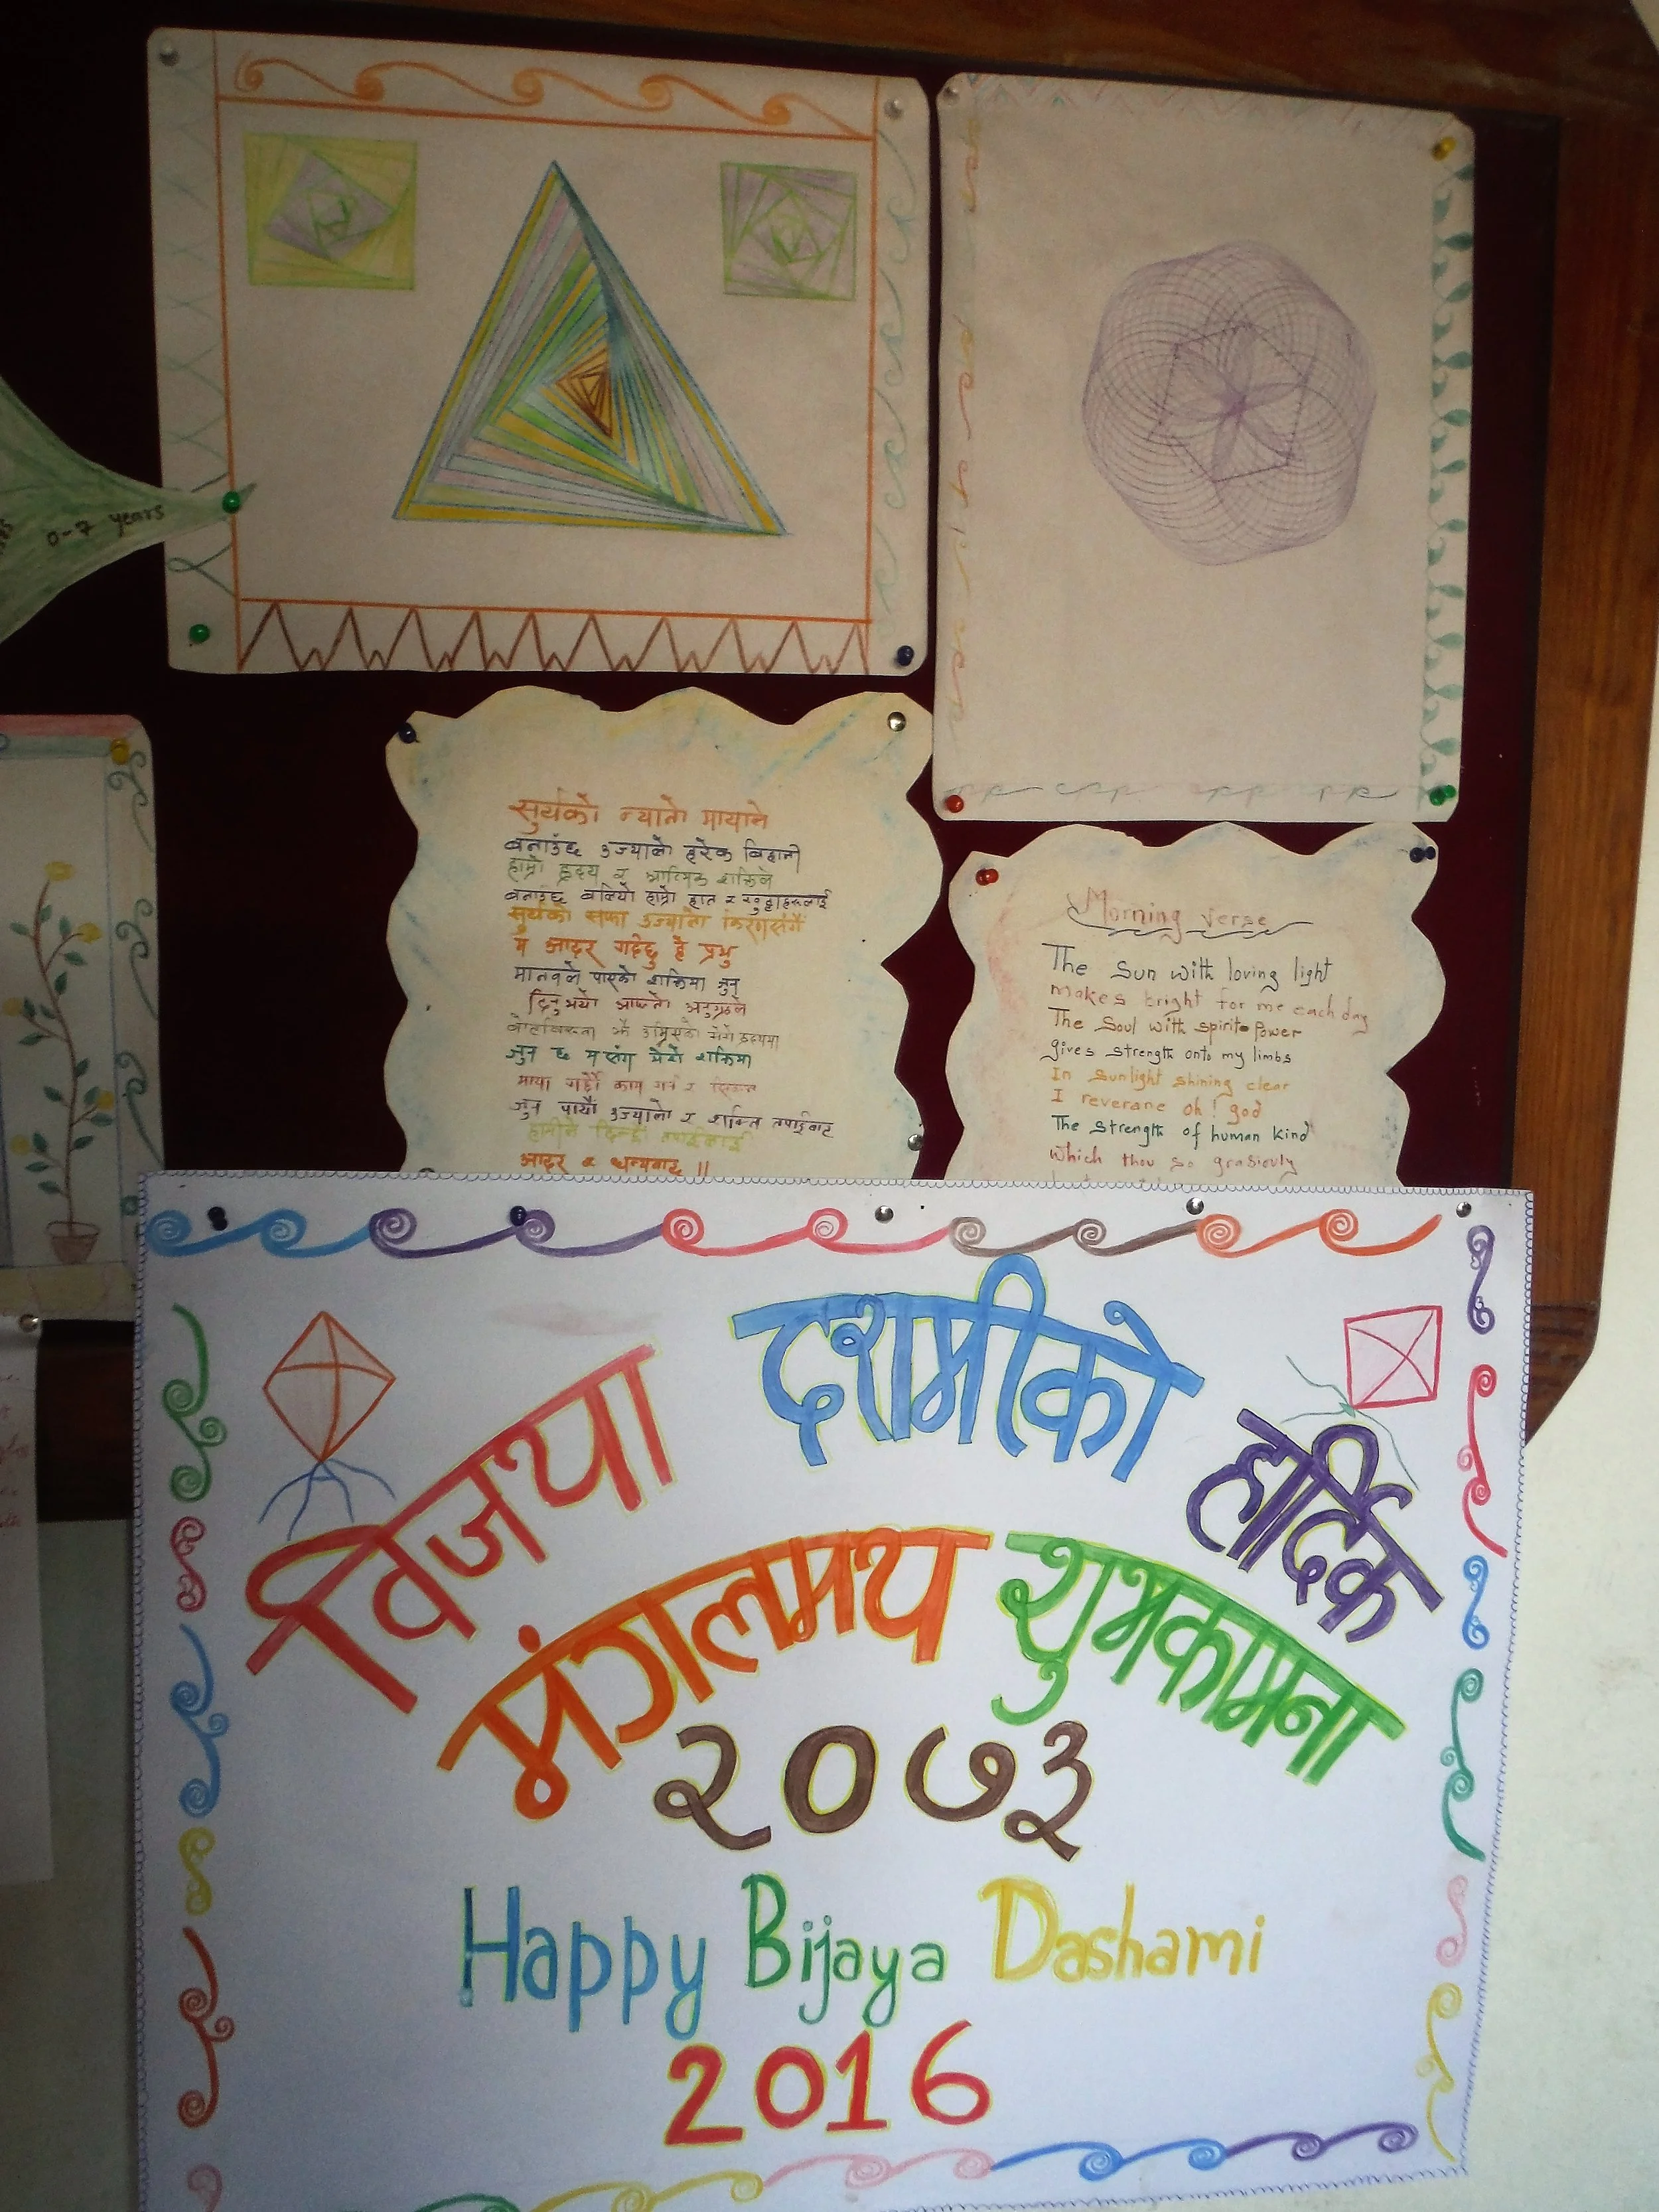 0-7 years
सुर्यको न्यानो मायाले
बनाउंछ उज्यालो हरेक बिहानी
हाम्रो ह्रदय र आत्मिक शक्तिले
बनाउंछ बलियो हाम्रो हात र
सुर्यको सफा उज्यालो किरणसंगै
म आदर गर्दछु हे प्रभु
मानवले पाएको शक्तिमा जुन्
दिनु भयो आफ्नो अनुग्रहले
जुन छ म संग मेरो शक्तिमा
माया गर्दै काम गर्न र
जुन पायौं उज्यालो र शक्ति तपाईबाट
हामीले दिन्छौं तपाईलाई
आदर र धन्यवाद ||
Morning verse
The Sun with loving light
makes bright for me each day
The Soul with spirit Power
gives strength onto my limbs
In sunlight shining clear
I reverane oh! god
The strength of human kind
which thou so grasiouly
विजया दशमीको हार्दिक
मंगलमय शुभकामना
२०७३
Happy Bijaya Dashami
2016